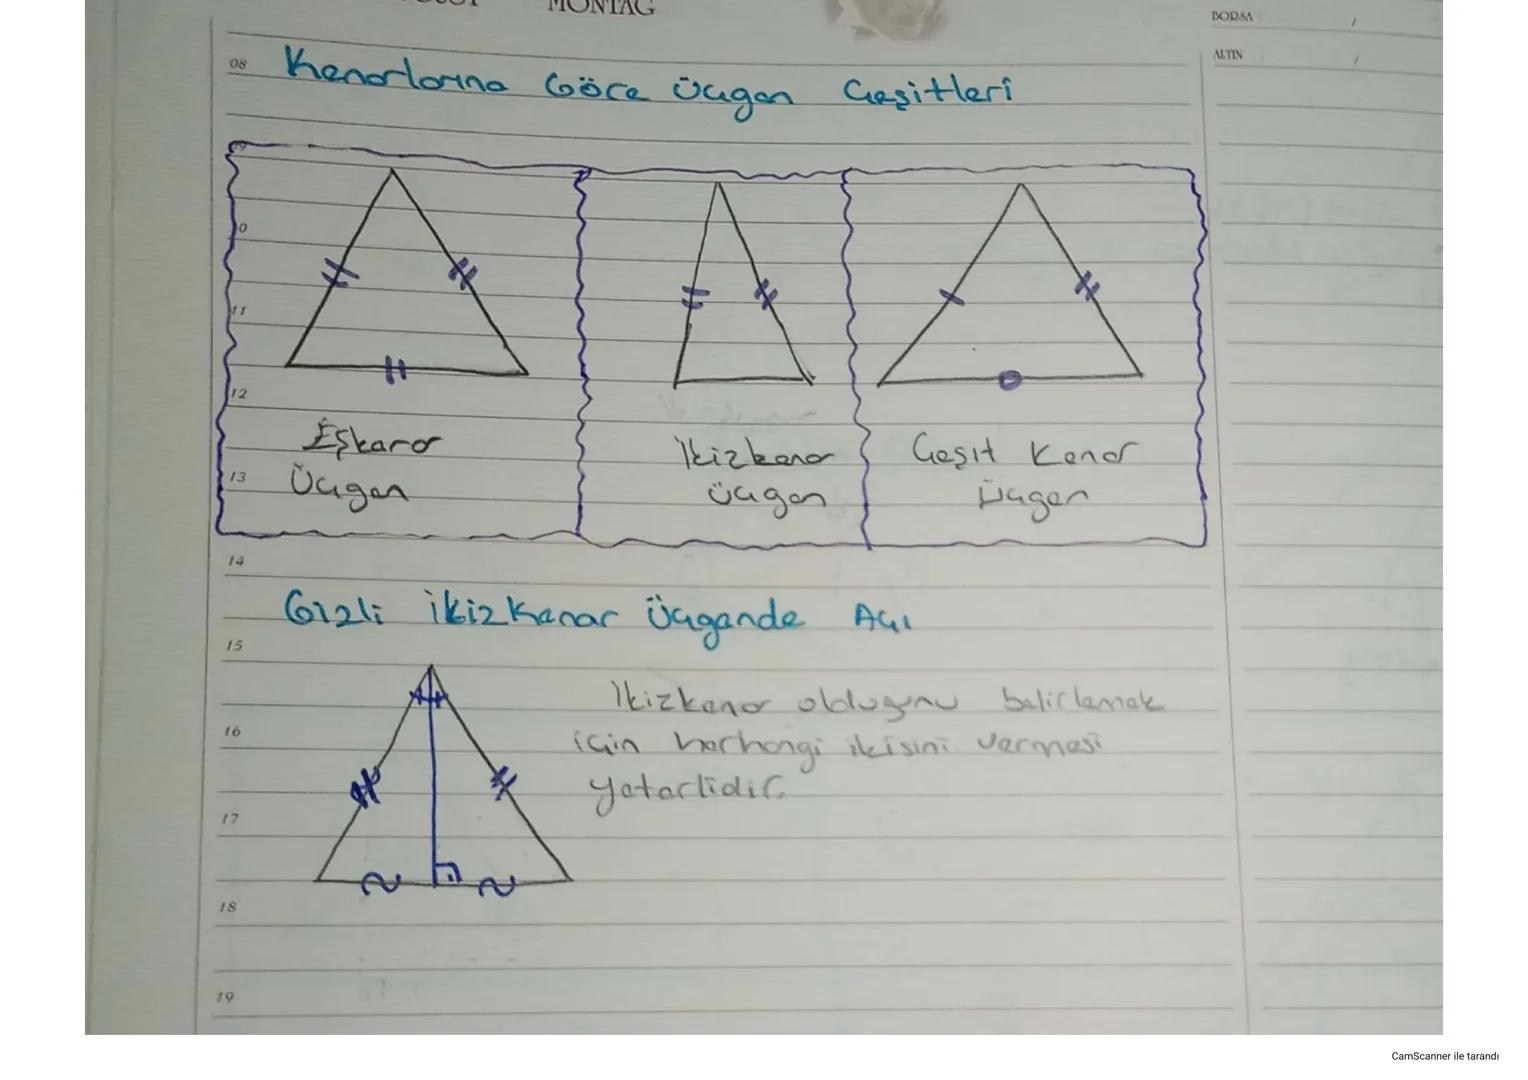 MONTAG
BORSA /
ALTIN /
08 Kenarlarına Göre Üçgen Çeşitleri
11
12
Eşkenar
Üçgen
İkizkenar
üçgen
Çeşit Kenar
Üçgen
13
14
Gizli İkizkenar Üçgende Açı
15
İkizkenar olduğunu belirlemek
için herhangi ikisini vermesi
yeterlidir.
16
17
18
19
CamScanner ile tarandı